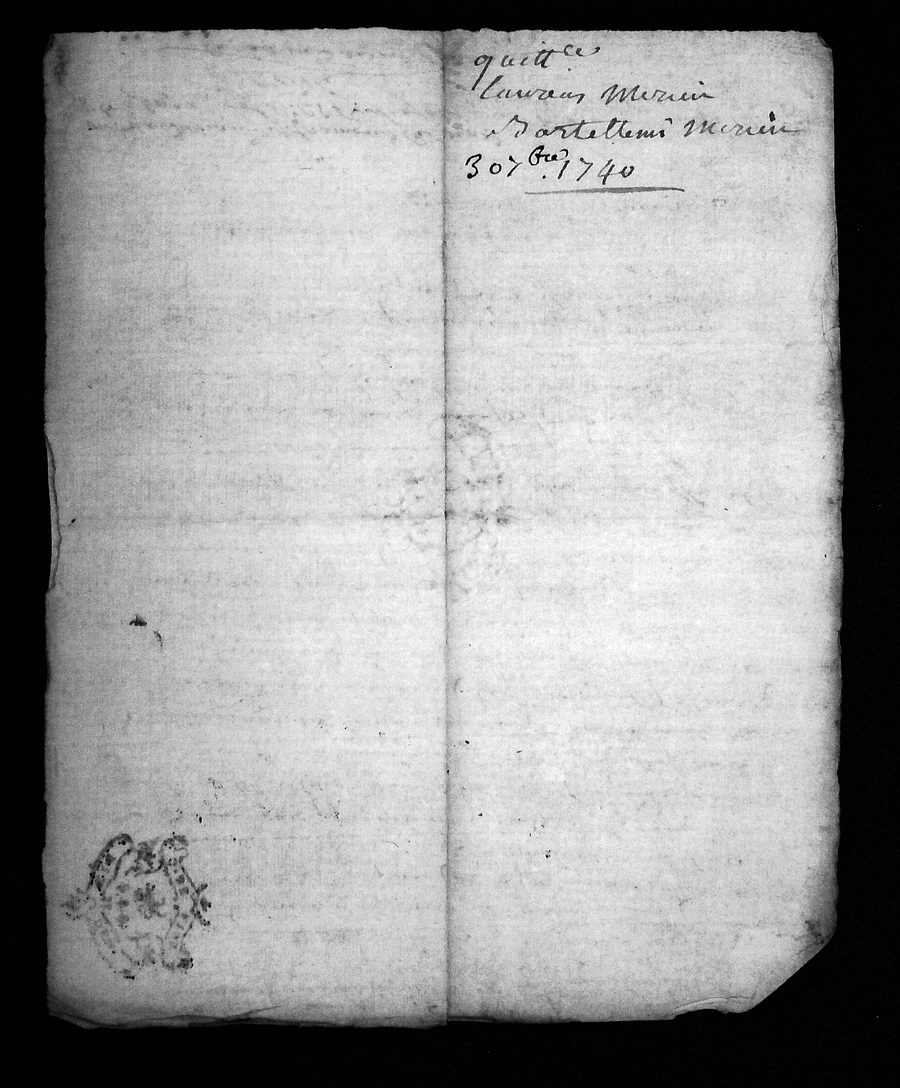 quitt.ce
laurens Merieu
Bartellemi Merieu
30 7bre. 1740